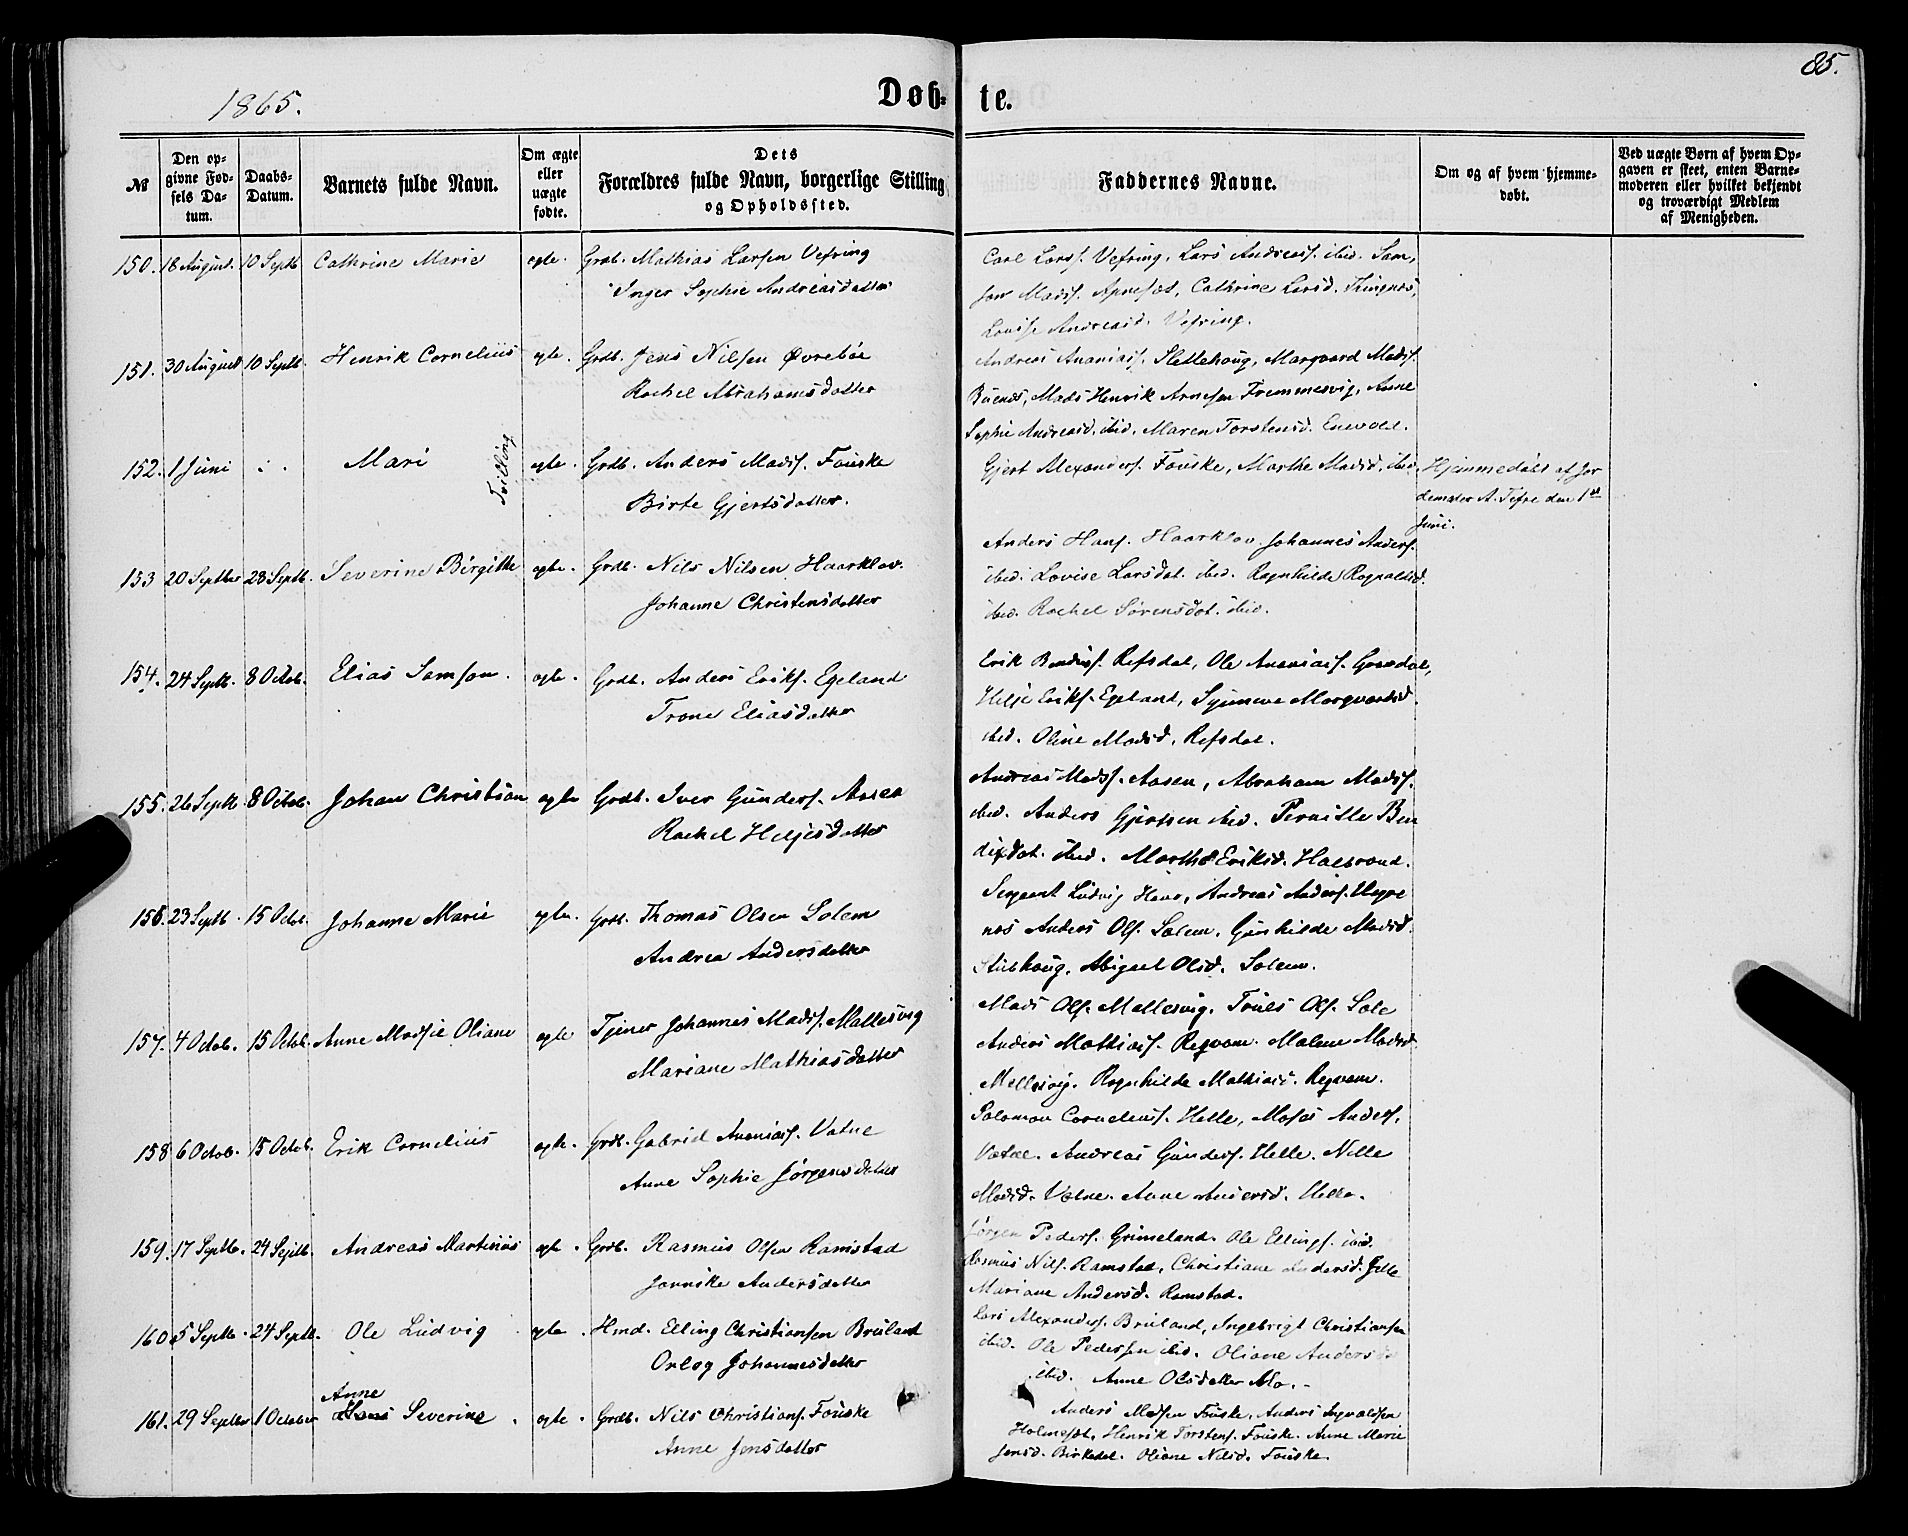 85.
1865.
Døb-te.
№
Den opgivne Fødsels Datum.
Daabs-Datum.
Barnets fulde Navn.
Om ægte eller uægte fødte.
Dets Forældres fulde Navn, borgerlige Stilling og Opholdssted.
Faddernes Navne.
Om og af hvem hjemmedøbt.
Ved uægte Børn af hvem Opgaven er skeet, enten Barnemoderen eller hvilket bekjendt og troværdigt Medlem af Menigheden.
150. 18 August. 10 Septb. Cathrine Marie ægte. Grdb. Mathias Larsen Vefring
Inger Sophie Andreasdatter
Carl Larss. Vefring, Lars Andreass. ibid. Sam,
son Madss. Apnesæt, Cathrine Larsd. Thingnes,
Lovise Andreasd. Vefring.
151. 30 August 10 Septb. Henrik Cornelius ægte. Grdb. Jens Nilsen Øvrebøe
Rachel Abrahamsdatter
Andreas Ananiass. Slettehoug, Marqvard Madss.
Buenes, Mads Henrik Arnesen Fremmersvig, Anne
Sophie Andreasd. ibid. Maren Torstensd. Enevold.
152. 1 Juni Mari Tvilling ægte. Grdb. Anders Madss. Fouske
Birte Gjertsdatter.
Gjert Alexanders. Fouske, Marthe Madsd. ibid.
Hjemmedøbt af Jor
demoder A. Tefre den 1st
Juni.
153 20 Septber 23 Septb. Severine Birgitte ægte. Grdb. Nils Nilsen Haarklov.
Johanne Christensdatter
Anders Hans. Haarklov Johannes Anders.
ibid. Lovise Larsdat. ibid. Ragnhilde Ragvaldsd.
ibid. Rachel Sørensdat. ibid.
154. 24 Septb. 8 Octob. Elias Samson. ægte. Grdb. Anders Eriks. Egeland
Trone Eliasdatter
Erik Bendixs. Refsdal, Ole Ananiass. Grasdal,
Helje Eriks. Egeland, Synneve Marqvardsd.
ibid. Oline Madsd. Refsdal.
155. 26 Septb. 8 Octob. Johan Christian ægte Grdb. Iver Gunders. Aasen
Rachel Heljesdatter
Andreas Madss. Aasen, Abraham Madss.
ibid. Anders Gjertsen ibid. Pernille Ben
dixdat. ibid. Marthe Eriksd. Halbrand.
156. 23 Septb. 15 Octob. Johanne Marie ægte. Grdb. Thomas Olsen Solem
Andrea Andersdatter
Sergeant Ludvig Hans, Andreas Anders. Hegre
nes Anders Ols. Solem. Gunhilde Madsd.
Stubhoug, Abigael Olsd. Solem.
157. 4 Octob. 15 Octob. Anne Madsie Oliane ægte Tjener Johannes Madss. Mallesvig
Mariane Mathiasdatter
Mads Ols. Mellesvig. Truls Ols. Sole
Anders Mathiass. Reqvam. Malene Madsd.
Mellesvig. Ragnhilde Mathiasd. Reqvam.
158 6 Octob. 15 Octob. Erik Cornelius ægte. Grdb. Gabriel Ananiass. Vatne
Anne Sophie Jørgensdatter
Salomon Cornelius. Helle, Moses Anders.
Vatne. Andreas Gunders. Helle. Nille
Madsd. Vatne. Anne Andersd. Helle.
159. 17 Septb. 24 Septb. Andreas Martinus ægte. Grdb. Rasmus Olsen Ramstad
Jannike Andersdatter
Jørgen Peders. Grimeland. Ole Ellings. ibid.
Rasmus Nils. Ramstad, Christiane Andersd. Helle
Mariane Andersd. Ramstad.
160 5 Septb. 24 Septb. Ole Ludvig ægte. Hmd. Elling Christiansen Bruland
Orlog Johannesdatter
Lars Alexanders. Bruland, Ingebrigt Christiansen
ibid. Ole Pedersen ibid. Oliane Anders
ibid. Anne Olsdatter Mo. -
161. 29 Septber 1 October Anne Severine ægte. Grdb. Nils Christians. Fouske
Anne Jensdatter
Anders Madsen Fouske, Anders Ingvaldsen
Holmesæt, Henrik Torstens. Fouske. Anne Marie
Jensd. Birkedal. Oliane Nilsd. Fouske.